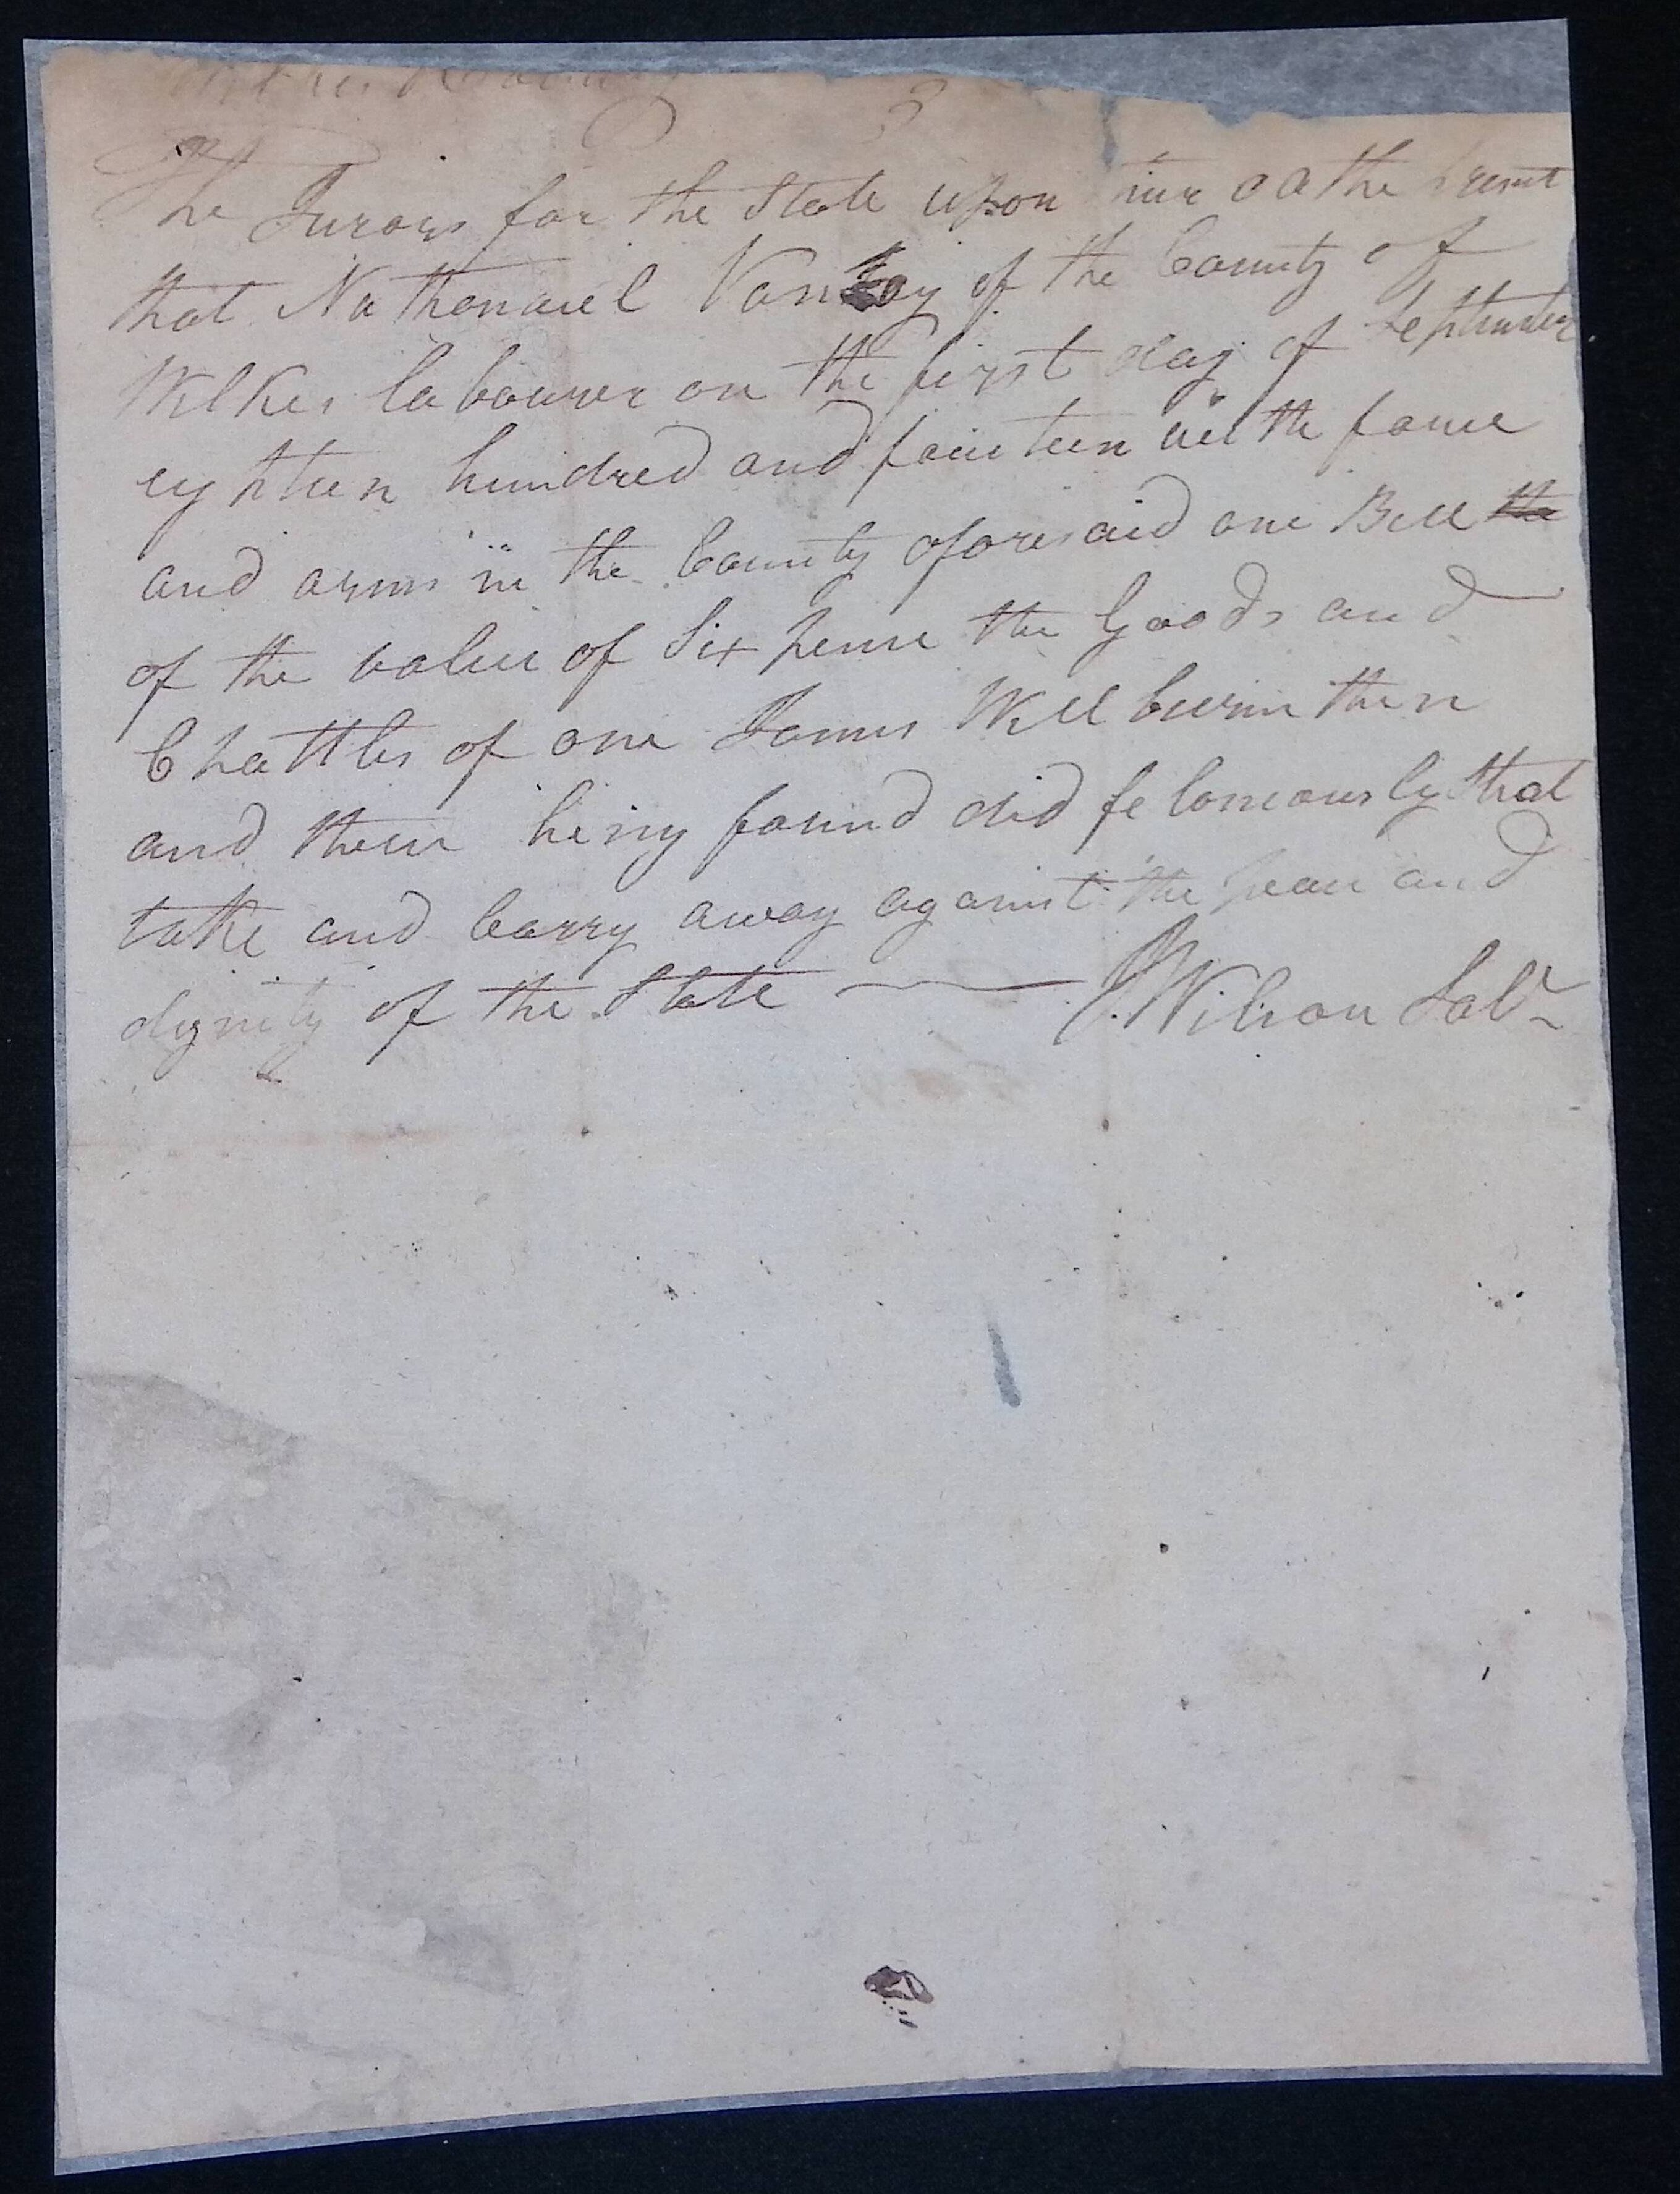 Wilkes County
The Jurors for the State upon their oathe present
that Nathanaiel Vanhoy of the County of
Wilkes labourer on the first day of September
eighteen hundred and fourteen with force
and arms in the County aforesaid one Bell the
of the value of Six pence the Goods and
Chattles of one James Wellburn then
and there being found did feloniously steal
take and Carry away against the peace and
dignity of the State J. Wilson Solr